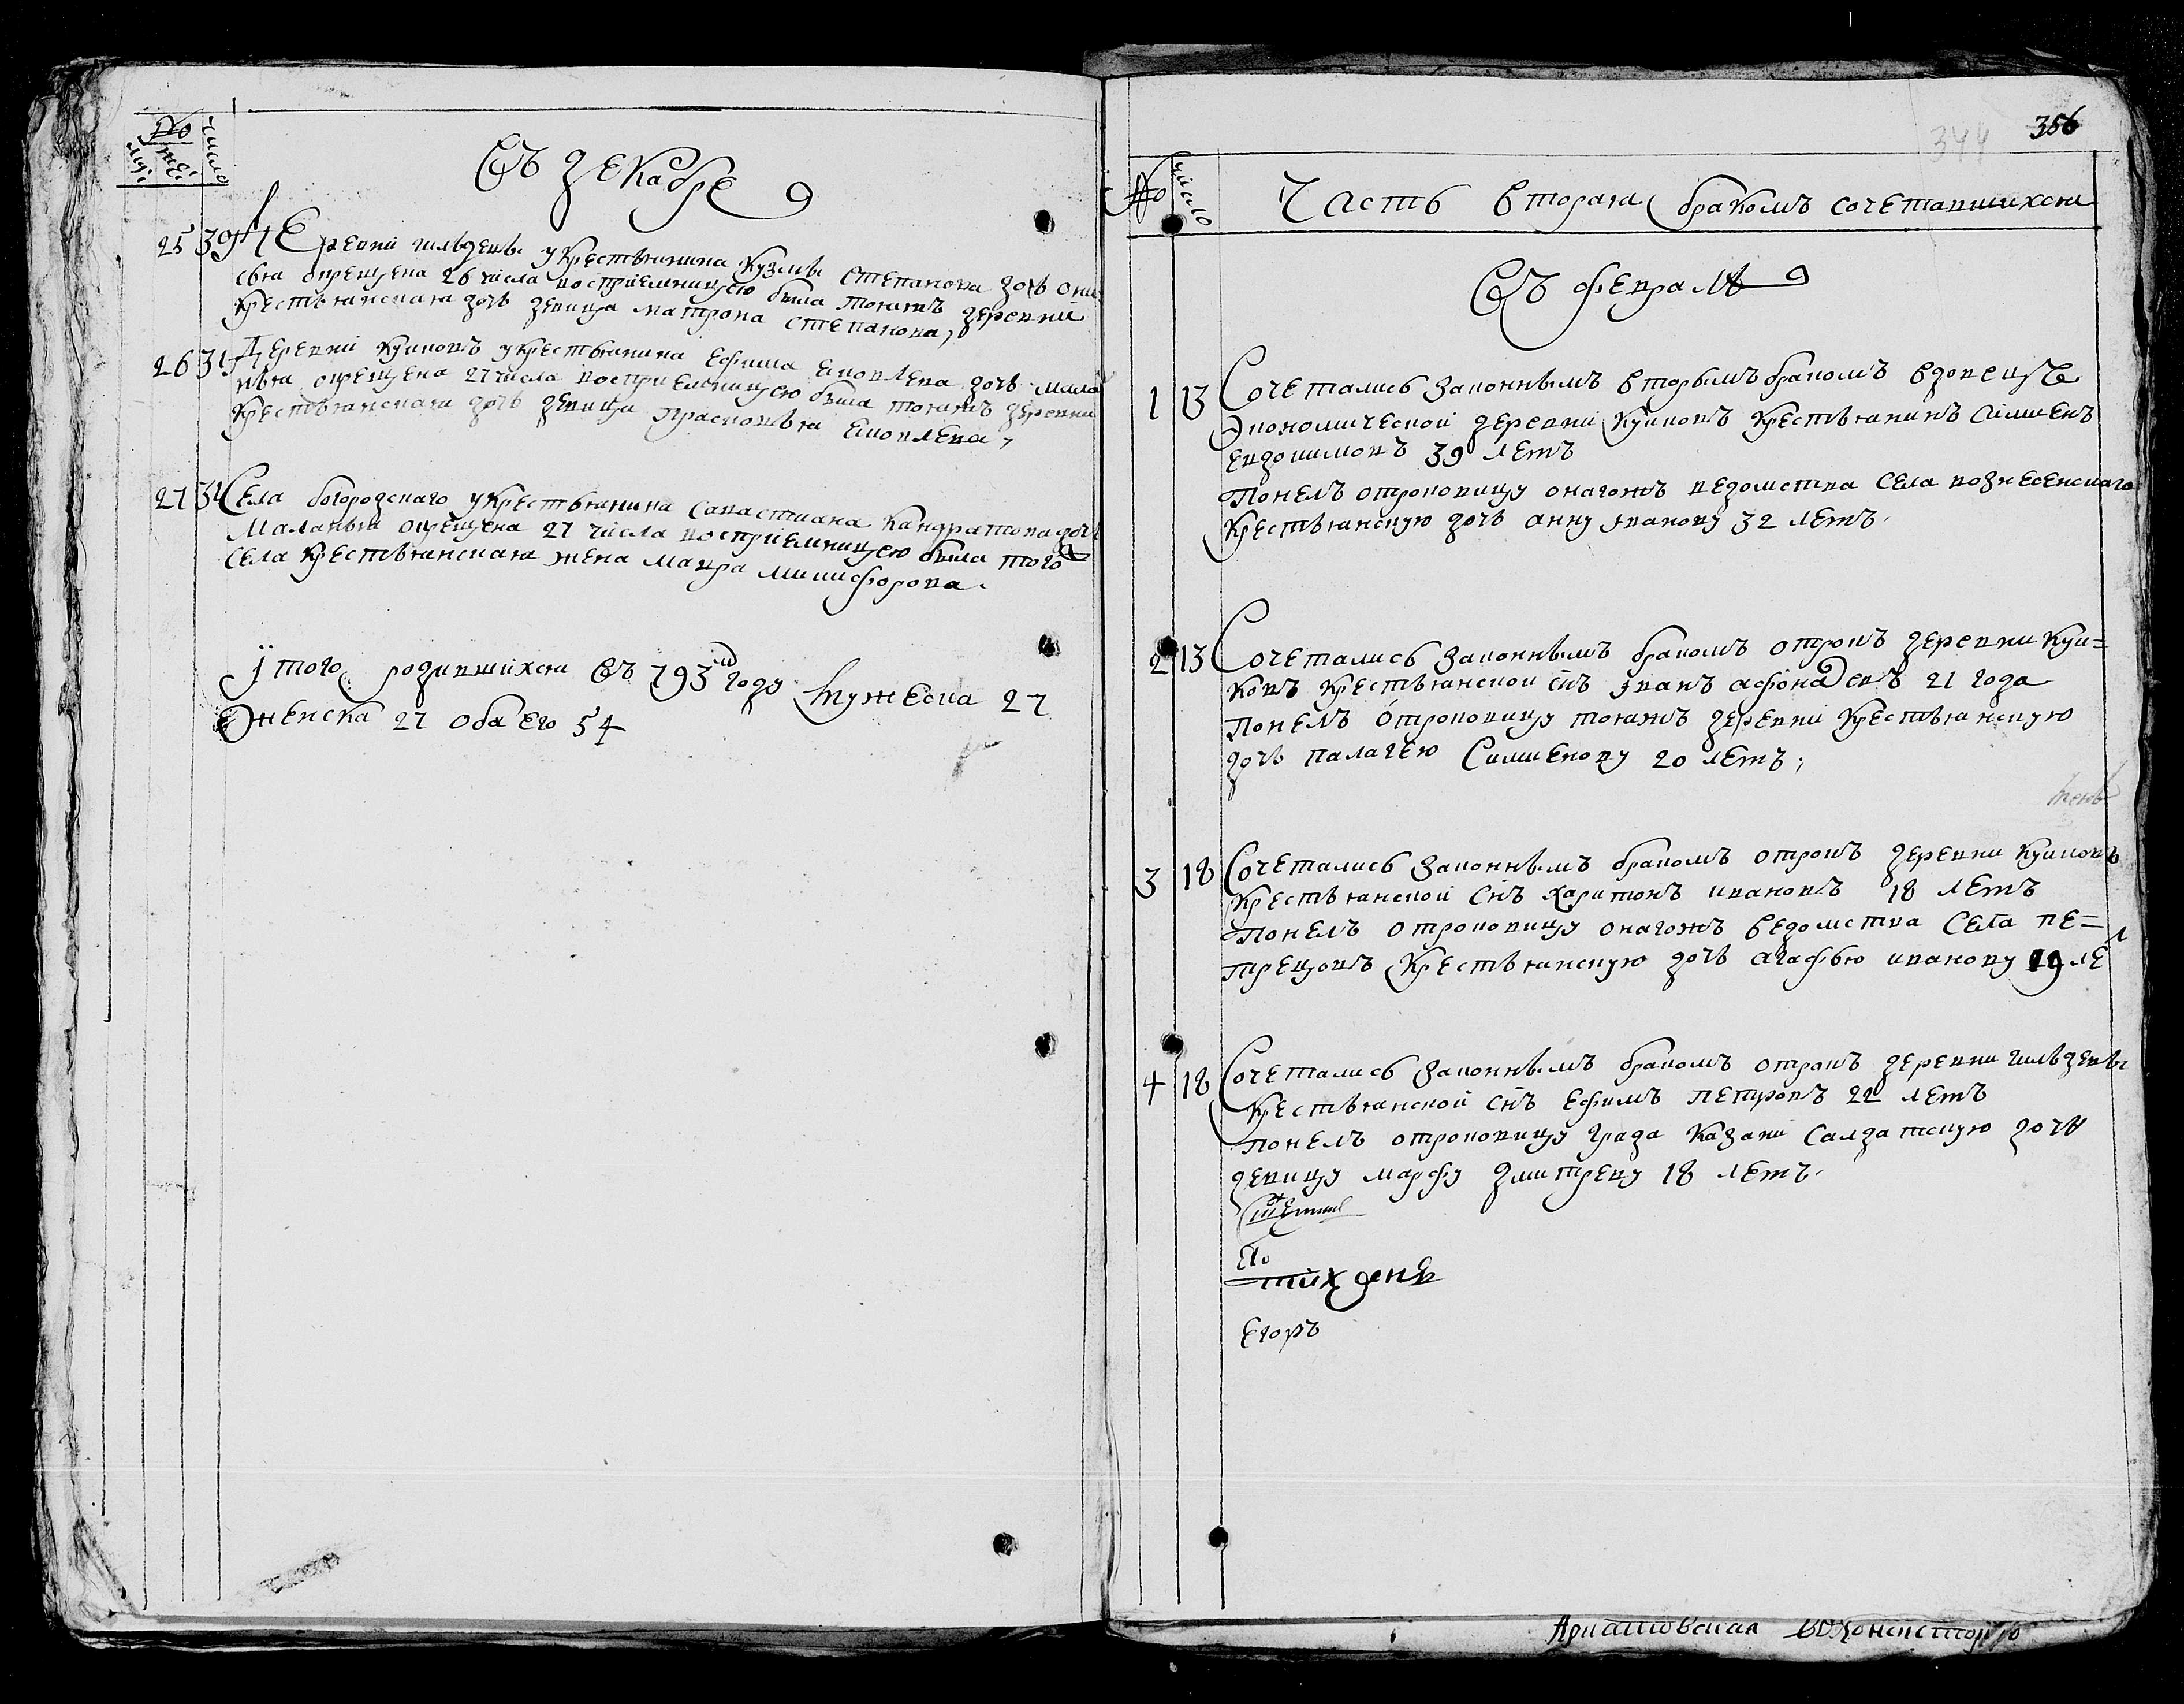 № число
муже: жен:
Въ декабре
25 30 Деревни гильдевы укрестьянина Кузмы степанова дочь они
сья окрещена 26 числа восприемницею была тояжъ деревни
крестьянская дочь девица матрона степанова,
26 31 Деревни куиковъ укрестьянина Ефима яковлева дочь мала
нья окрещена 27 числа восприемницею была тояжъ деревни
крестьянская дочь девица прасковья яковлева,
27 31 Села богородскаго укрестьянина Савастиана Кандратова дочь
Маланья окрещена 27 числа восприемницею была того
села крестьянская жена мавра никифорова.
Итого родившихся въ 793м году мужеска 27
женска 27 обаего 54
344 356
№ число
Часть вторая браком сочетавшихся
Въ феврале
1 13 Сочетались законнымъ вторымъ бракомъ вдовецъ
Экономической деревни Куиковъ крестьянинъ симиенъ
евдокимовъ 39 летъ
Понелъ отроковицу онагожъ ведомства села вознесенскаго
крестьянскую дочь анну иванову 32 летъ.
2 13 Сочетались законнымъ бракомъ отрокъ деревни Куи=
ковъ крестьянской снъ иванъ афонасевъ 21 года
Понелъ отроковицу тояжъ деревни крестьянскую
дочь палагею Симиенову 20 летъ;
3 18 Сочетались законнымъ бракомъ отрокъ деревни куиковъ
крестьянской снъ харитонъ ивановъ 18 летъ
Понелъ отроковицу онагожъ ведомства села пе=
трецовъ крестьянскую дочь агафью иванову 19 ле
4 18 Сочетались законнымъ бракомъ отрокъ деревни гильдевы
крестьянской снъ ефимъ петровъ 22 летъ
понелъ отроковицу града казани салдатскую дочь
девицу марфу дмитреву 18 летъ.
Его
тихъ день
Егоръ